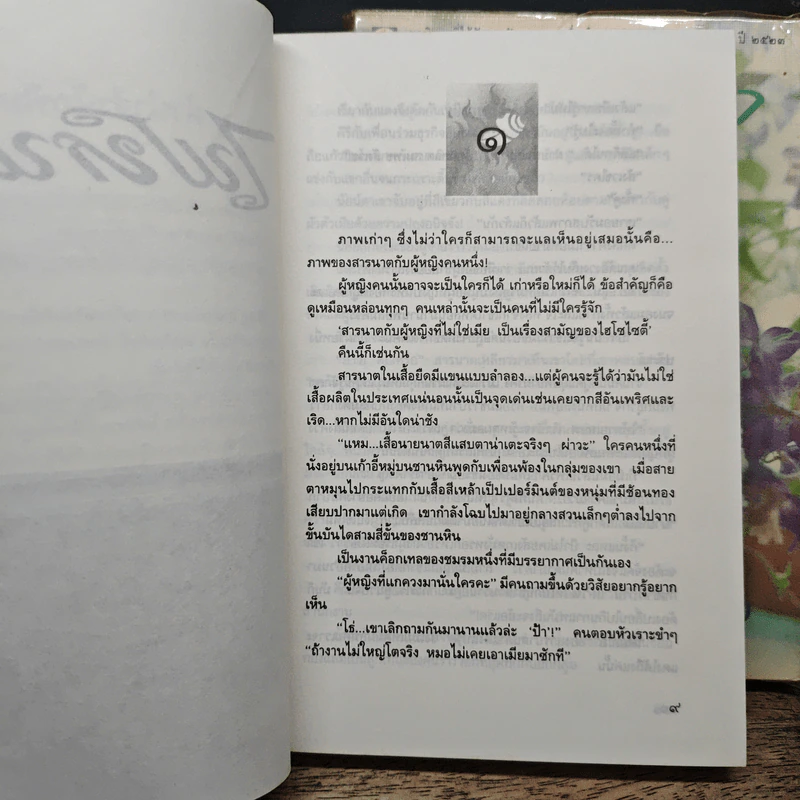 ปี ๒๕๒๓
๑
ภาพเก่าๆ ซึ่งไม่ว่าใครก็สามารถจะแลเห็นอยู่เสมอนั้นคือ...
ภาพของสารนาตกับผู้หญิงคนหนึ่ง!
ผู้หญิงคนนั้นอาจจะเป็นใครก็ได้ เก่าหรือใหม่ก็ได้ ข้อสำคัญก็คือ
ดูเหมือนหล่อนทุกๆ คนเหล่านั้นจะเป็นคนที่ไม่มีใครรู้จัก
‘สารนาตกับผู้หญิงที่ไม่ใช่เมีย เป็นเรื่องสามัญของไฮโซไซตี้’
คืนนี้ก็เช่นกัน
สารนาตในเสื้อยืดมีแขนแบบลำลอง...แต่ผู้คนจะรู้ได้ว่ามันไม่ใช่
เสื้อผลิตในประเทศแน่นอนนั้นเป็นจุดเด่นเช่นเคยจากสีอันเพริศและ
เริด...หากไม่มีอันใดน่าชัง
“แหม...เสื้อนายนาตสีแสบตาน่าเตะจริงๆ ผ่าวะ” ใครคนหนึ่งที่
นั่งอยู่บนเก้าอี้หมู่บนชานหินพูดกับเพื่อนพ้องในกลุ่มของเขา เมื่อสาย
ตาหมุนไปกระแทกกับเสื้อสีเหล้าเป็ปเปอร์มินต์ของหนุ่มที่มีช้อนทอง
เสียบปากมาแต่เกิด เขากำลังโฉบไปมาอยู่กลางสวนเล็กๆต่ำลงไปจาก
ขั้นบันไดสามสี่ขั้นของชานหิน
เป็นงานค็อกเทลของชมรมหนึ่งที่มีบรรยากาศเป็นกันเอง
“ผู้หญิงที่แกควงมานั่นใครคะ” มีคนถามขึ้นด้วยวิสัยอยากรู้อยาก
เห็น
“โธ่...เขาเลิกถามกันมานานแล้วล่ะ ‘ป้า’!” คนตอบหัวเราะขำๆ
“ถ้างานไม่ใหญ่โตจริง หมอไม่เคยเอาเมียมาซักที”
๙